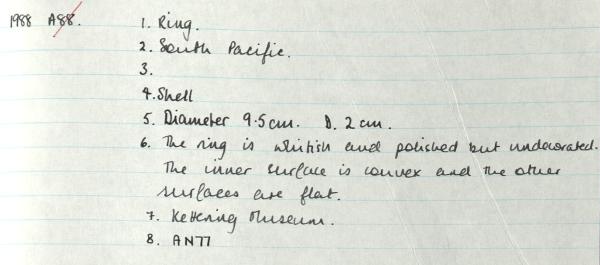 1988 A88. 1. Ring.
2. South Pacific.
3.
4. Shell
5. Diameter 9.5cm. D. 2 cm.
6. The ring is whitish and polished but undecorated.
The inner surface is convex and the other
surfaces are flat.
7. Kettering Museum.
8. AN77